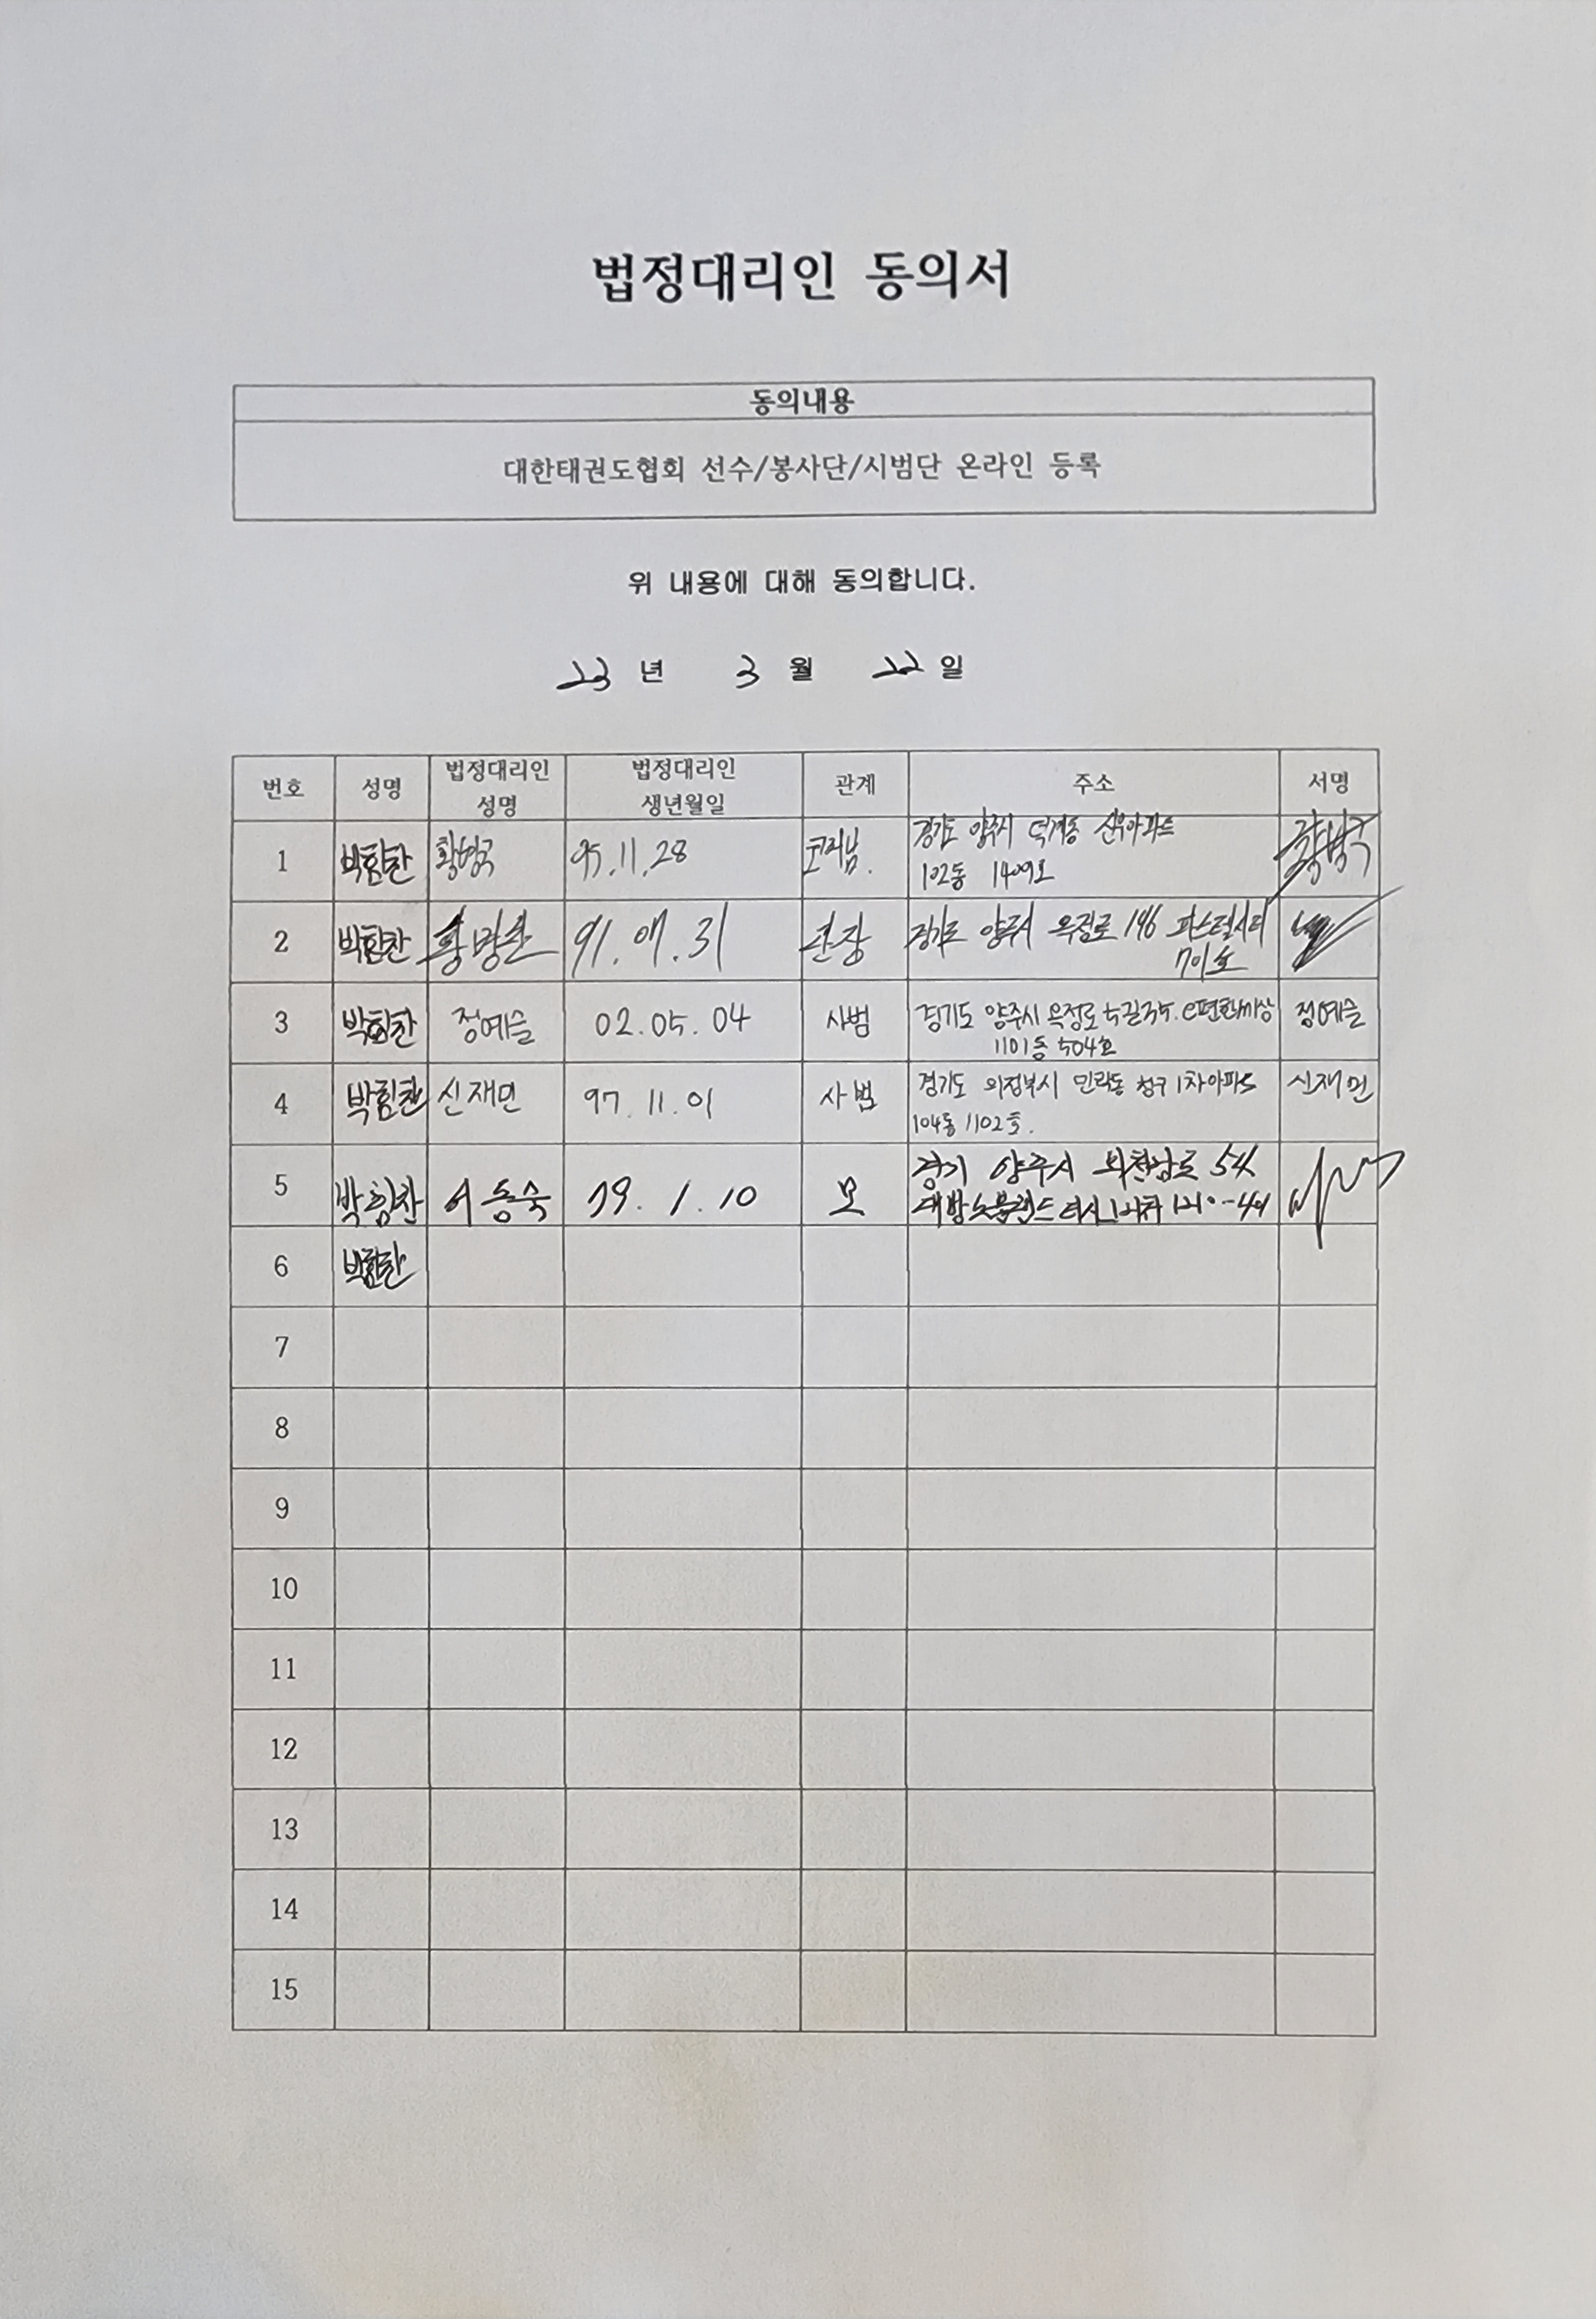 법정대리인 동의서
동의내용
대한태권도협회 선수/봉사단/시범단 온라인 등록
위 내용에 대해 동의합니다.
23 년 3 월 22 일
번호 성명 법정대리인 성명 법정대리인 생년월일 관계 주소 서명
1 박힘찬 95.11.28 경기도 양주시 덕계동 신우아파트
102동 1409호
2 박힘찬 91.07.31 관장 경기도 양주시 옥정로 196 파스텔시티
701호
3 박힘찬 정예슬 02.05.04 사범 경기도 양주시 옥정로5길35. e편한세상 정예슬
1101동 504호
4 박힘찬 신재민 97.11.01 사범 경기도 의정부시 민락동 청구1차아파트 신재민
104동 1102호.
5 박힘찬 어동숙 79.1.10 모 경기 양주시 54
대방노블랜드
6 박힘찬
7
8
9
10
11
12
13
14
15